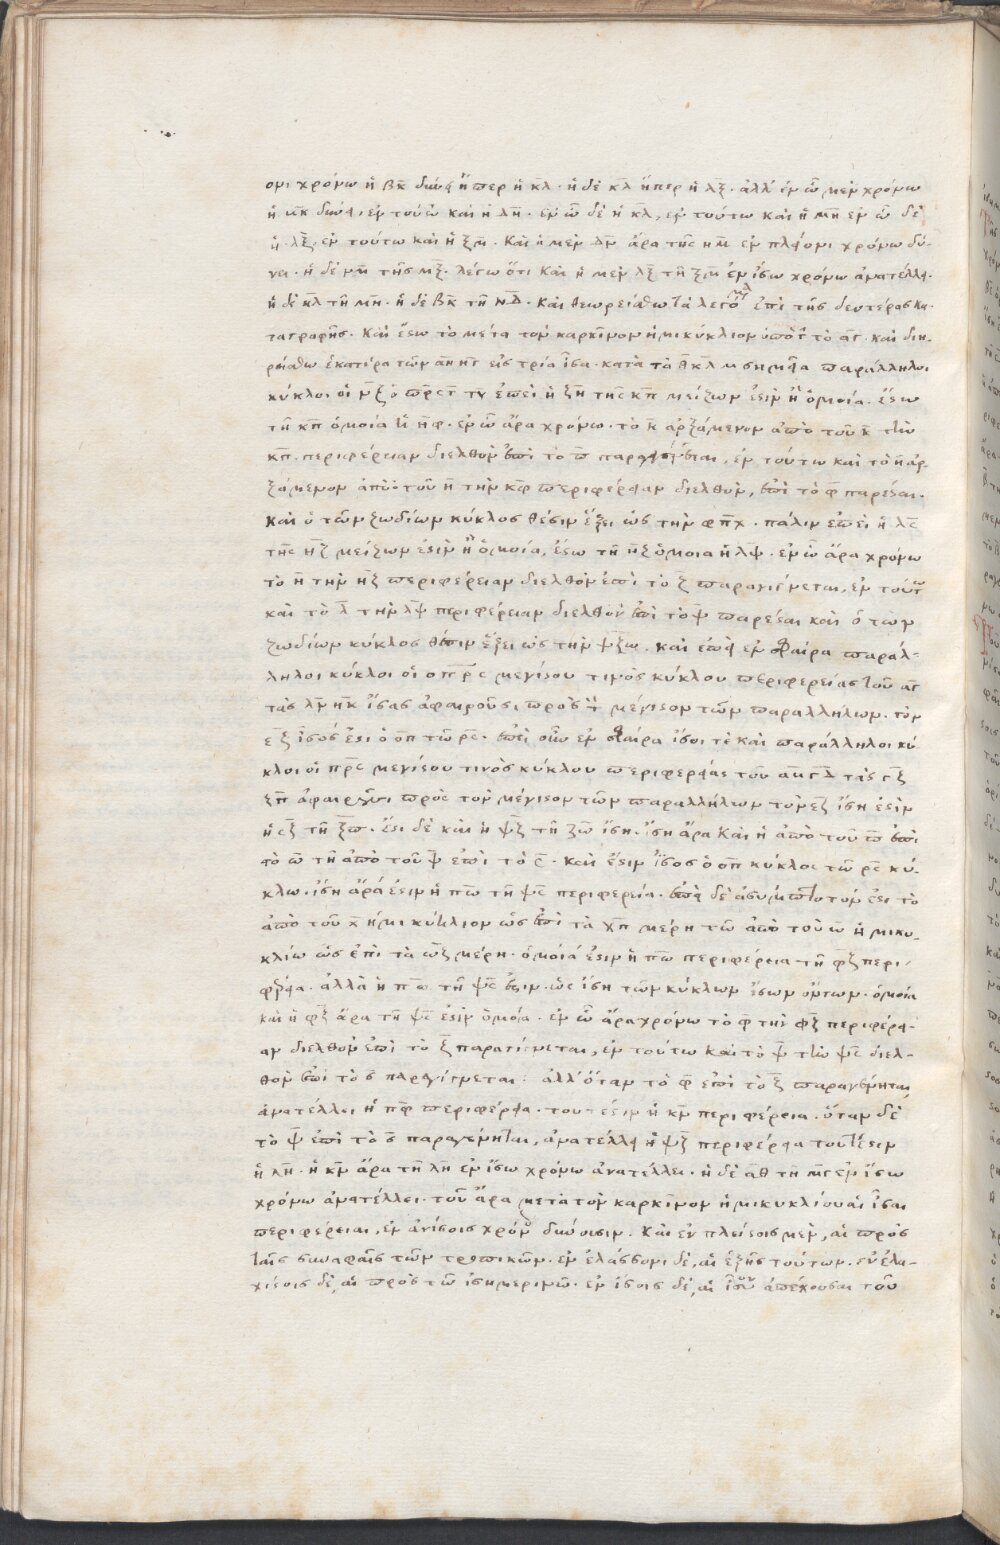 ονι χρόνω ἡ β̅κ̅ δύνει ἤπερ ἡ κ̅λ̅. ἡ δὲ κ̅λ̅ ἤπερ ἡ λ̅ξ̅. ἀλλ' ἐν ὧ μὲν χρόνω
δύνει, ἐν τούτω καὶ ἡ λ̅η̅. ἐν ὧ δὲ ἡ κ̅λ̅, ἐν τούτω καὶ ἡ μ̅η̅ ἐν ὧ δὲ
ἡ λ̅ξ̅. ἐν τούτω καὶ ἡ ξ̅μ̅. καὶ ἡ μὲν ἄρα τῆς ἐν πλείονι χρόνω δύ-
νει. ἡ δὲ τῆς μ̅ξ̅. λέγω ὅτι καὶ ἡ μὲν λ̅ξ̅ τῆ ξ̅μ̅ ἐν ἴσω χρόνω ἀνατέλλει.
ἡ δὲ κ̅λ̅ τῆ μ̅η̅. ἡ δὲ β̅κ̅ τῆ ν̅δ̅. καὶ θεωρείσθω τὰ λεγόμενα ἐπὶ τῆς δευτέρας κα-
ταγραφῆς. καὶ ἔστω τὸ μετὰ τὸν καρκίνον ἡμικύκλιον τὸ α̅γ̅. καὶ διη-
ρείσθω ἑκατέρα τῶν εἰς τρία ἴσα. κατὰ τὰ θ̅ κ̅ λ̅ μ̅ σημεῖα παράλληλοι
κύκλοι οἱ ἐπεὶ ἡ ξ̅η̅ τῆς κ̅π̅ μείζων ἐστὶν ἢ ὁμοία. ἔστω
τῆ κ̅π̅ ὁμοία ἡ η̅φ̅. ἐν ὧ ἄρα χρόνω. τὸ κ̅ ἀρξάμενον ἀπὸ τοῦ κ̅ τὴν
κ̅π̅. περιφέρειαν διελθὸν ἐπὶ τὸ π̅ παραγίνεται, ἐν τούτω καὶ τὸ η̅ ἀρ-
ξάμενον ἀπὸ τοῦ η̅ τὴν κ̅φ̅ περιφέρειαν διελθὸν, ἐπὶ τὸ φ̅ παρέσται.
καὶ ὁ τῶν ζωδίων κύκλος θέσιν ἕξει ὡς τὴν φ̅π̅χ̅. πάλιν ἐπεὶ ἡ λ̅ς̅
τῆς η̅ξ̅ μείζων ἐστὶν ἢ ὁμοία, ἔστω τῆ η̅ξ̅ ὁμοία ἡ λ̅ψ̅. ἐν ὧ ἄρα χρόνω
τὸ η̅ τὴν η̅ξ̅ περιφέρειαν διελθὸν ἐπὶ τὸ ξ̅ παραγίνεται, ἐν τούτω
καὶ τὸ λ̅ τὴν λ̅ψ̅ περιφέρειαν διελθὸν ἐπὶ τὸ ψ̅ παρέσται καὶ ὁ των
ζωδίων κύκλος θέσιν ἕξει ὡς τὴν ψ̅ξ̅ω̅. καὶ ἐπεὶ ἐν σφαίρα παράλ-
ληλοι κύκλοι οἱ ο̅π̅ ρ̅ς̅ μεγίστου τινὸς κύκλου περιφερείας τοῦ α̅γ̅
τὰς λ̅η̅ η̅κ̅ ἴσας ἀφαιροῦσι πρὸς τ μέγιστον τῶν παραλλήλων. τὸν
ε̅ξ̅ ἴσος ἐστι ὁ ο̅π̅ τῶ ρ̅ς̅. ἐπεὶ οὖν ἐν σφαίρα ἴσοι τὲ καὶ παράλληλοι κύ-
κλοι οἱ π̅ρ̅ς̅ μεγίστου τινὸς κύκλου περιφερείας τοῦ α̅η̅γ̅δ̅ τὰς ς̅ξ̅
ξ̅π̅ ἀφαιροῦσι πρὸς τὸν μέγιστον τῶν παραλλήλων τὸν ε̅ξ̅ ἴση ἐστὶν
ἡ ς̅ξ̅ τῆ ξ̅π̅. ἔστι δὲ καὶ ἡ ψ̅ξ̅ τῆ ξ̅ω̅ ἴση. ἴση ἄρα καὶ ἡ ἀπὸ τοῦ π̅ ἐπὶ
τὸ ω̅ τῆ ἀπὸ τοῦ ψ̅ ἐπὶ τὸ ς̅. καὶ ἔστιν ἴσος ὁ ο̅π̅ κύκλος τῶ ρ̅ς̅ κύ-
κλω. ἴση ἄρά ἐστιν ἡ π̅ω̅ τῆ ψ̅ς̅ περιφερεία. ἐπεὶ δὲ ἀσύμπτωτόν ἐστι τὸ
ἀπὸ τοῦ χ̅ ἡμικύκλιον ὡς ἐπὶ τὰ χ̅π̅ μέρη τῶ ἀπὸ τοῦ ω ἡμικυ-
κλίω ὡς ἐπὶ τὰ ω̅ξ̅ μέρη. ὁμοία ἐστὶν ἡ π̅ω̅ περιφέρεια τῆ φ̅ξ̅ περι-
φερεία. ἀλλὰ ἡ π̅ω̅ τῆ ψ̅ς̅ ἐστιν. ὡς ἴση τῶν κύκλων ἴσων ὄντων. ὁμοία
καὶ ἡ φ̅ξ̅ ἄρα τῆ ψ̅ς̅ ἐστὶν ὁμοία. ἐν ὧ ἄρα χρόνω τὸ φ̅ τὴν φ̅ξ̅ περιφέρει-
αν διελθὸν ἐπὶ τὸ ξ̅ παραγίνεται, ἐν τούτω καὶ τὸ ψ̅ τὴν ψ̅ς̅ διελ-
θὸν ἐπὶ τὸ ς̅ παραγίνεται. ἀλλ' ὅταν τὸ φ̅ ἐπὶ τὸ ξ̅ παραγένηται,
ἀνατέλλει ἡ π̅φ̅ περιφέρεια. τουτέστιν ἡ κ̅η̅ περιφέρεια. ὅταν δὲ
τὸ ψ̅ ἐπὶ τὸ ς̅ παραγένηται, ἀνατέλλει ἡ ψ̅ξ̅ περιφέρεια τουτέστιν
ἡ λ̅η̅. ἡ κ̅η̅ ἄρα τῆ λ̅η̅ ἐν ἴσω χρόνω ἀνατέλλει. ἡ δὲ α̅θ̅ τῆ μ̅γ̅ ἐν ἴσω
χρόνω ἀνατέλλει. τοῦ ἄρα μετὰ τὸν καρκίνον ἡμικυκλίου αἱ ἴσαι
περιφέρειαι, ἐν ἀνίσοις χρόνοις δύνουσιν. καὶ ἐν πλείστοις μὲν, αἱ πρὸς
ταῖς συναφαῖς τῶν τροπικῶν. ἐν ἐλάσσονι δὲ, αἱ ἑξῆς τούτων. ἐν ἐλα-
χίστοις δὲ, αἱ πρὸς τῶ ἰσημερινῶ. ἐν ἴσοις δὲ, αἱ ἴσον ἀπέχουσαι τοῦ